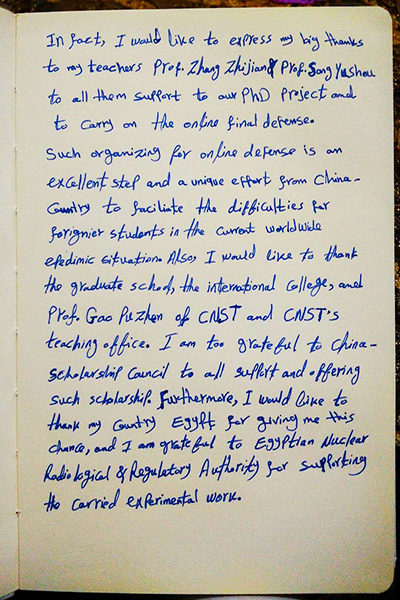 In fact, I would like to express my big thanks
to my teachers Prof. Zhang Zhijian & Prof. Song Yushou
to all them support to our PhD Project and
to carry on the online final defense.
Such organizing for online defense is an
excellent step and a unique effort from China-
Country to faciliate the difficulties for
forignier students in the current worldwide
epedimic situation. Also, I would like to thank
the graduate school, the international college, and
Prof. Gao Puzhen of CNST and CNST's
teaching office. I am too grateful to China-
scholarship Council to all support and offering
such scholarship. Furthermore, I would like to
thank my country Egypt for giving me this
chance, and I am grateful to Egyptian Nuclear
Radiological & Regulatory Authority for supporting
the carried experimental work.